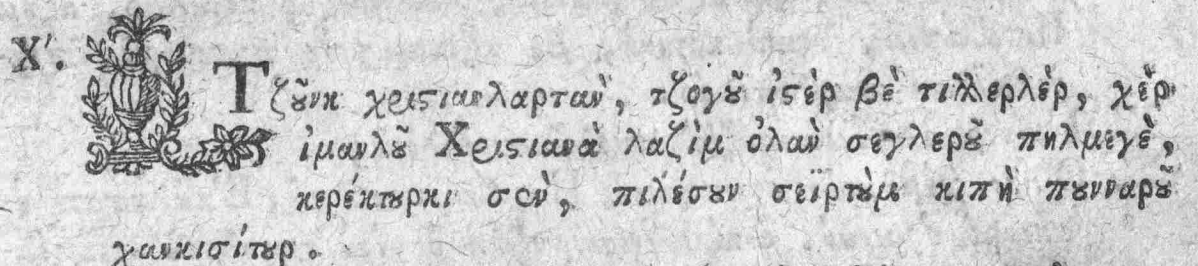 Χ'. Τζȣ̃νκ χριστιανλαρτὰν, τζογȣ̃ ἰστὲρ βὲ τιλλερλὲρ, χὲρ
ἰμανλȣ̃ Χριστιανὰ λαζὶμ ὀλὰν σεγλερȣ̃ πηλμεγὲ,
κερέκτȣρκι σὸν, πιλέσȣν σεϊρτὺμ κιπὴ πȣνναρȣ̃
χανκισίτȣρ.